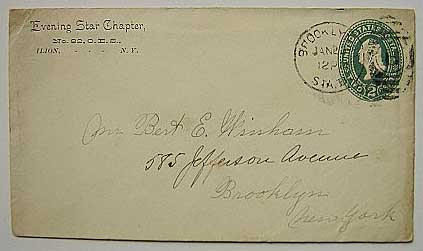 Evening Star Chapter,
No. 92, O.E.S.,
ILION, - - - N.Y.
BROOKLY
JAN
12
STA.
UNITED STATES
2
Mr Bert E. Winham
585 Jefferson Avenue
Brooklyn
New York